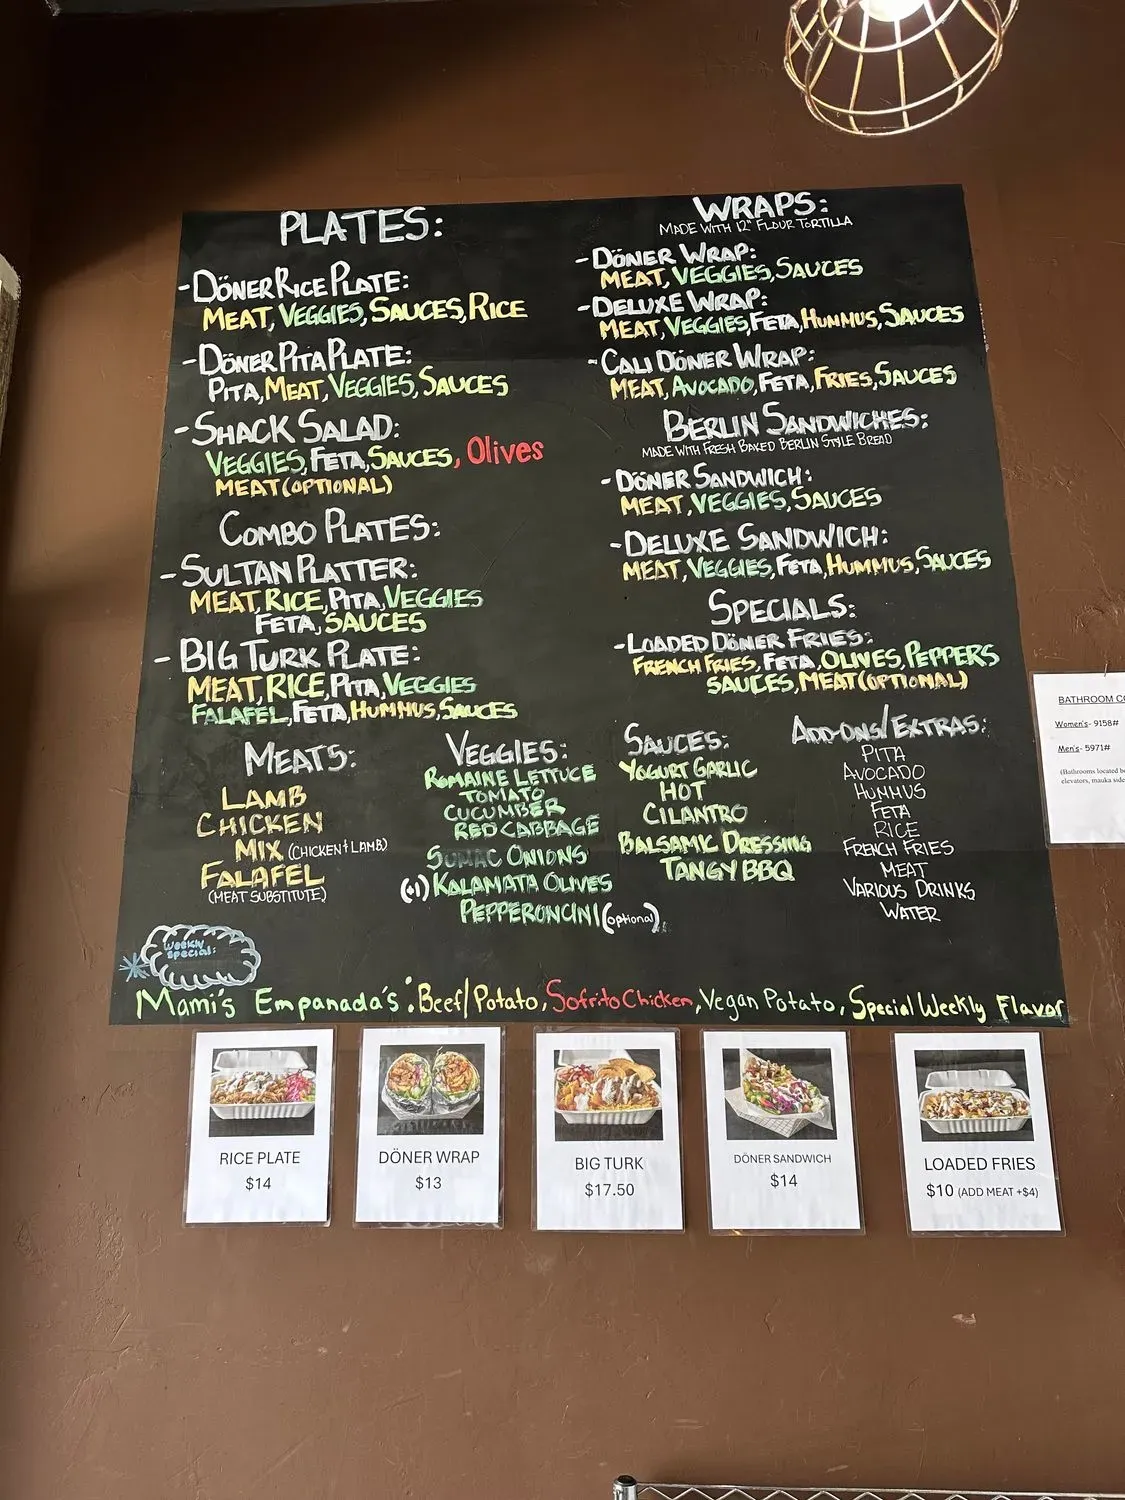 PLATES:
-DÖNER RICE PLATE:
MEAT, VEGGIES, SAUCES, RICE
-DÖNER PITA PLATE:
PITA, MEAT, VEGGIES, SAUCES
-SHACK SALAD:
VEGGIES, FETA, SAUCES, Olives
MEAT (OPTIONAL)
COMBO PLATES:
-SULTAN PLATTER:
MEAT, RICE, PITA, VEGGIES
FETA, SAUCES
-BIG TURK PLATE:
MEAT, RICE, PITA, VEGGIES
FALAFEL, FETA, HUMMUS, SAUCES
WRAPS:
MADE WITH 12" FLOUR TORTILLA
-DÖNER WRAP:
MEAT, VEGGIES, SAUCES
-DELUXE WRAP:
MEAT, VEGGIES, FETA, HUMMUS, SAUCES
-CALI DÖNER WRAP:
MEAT, AVOCADO, FETA, FRIES, SAUCES
BERLIN SANDWICHES:
MADE WITH FRESH BAKED BERLIN STYLE BREAD
-DÖNER SANDWICH:
MEAT, VEGGIES, SAUCES
-DELUXE SANDWICH:
MEAT, VEGGIES, FETA, HUMMUS, SAUCES
SPECIALS:
-LOADED DÖNER FRIES:
FRENCH FRIES, FETA, OLIVES, PEPPERS
SAUCES, MEAT (OPTIONAL)
MEATS:
LAMB
CHICKEN
MIX (CHICKEN + LAMB)
FALAFEL
(MEAT SUBSTITUTE)
VEGGIES:
ROMAINE LETTUCE
TOMATO
CUCUMBER
RED CABBAGE
SUMAC ONIONS
(+1) KALAMATA OLIVES
PEPPERONCINI (optional)
SAUCES:
YOGURT GARLIC
HOT
CILANTRO
BALSAMIC DRESSING
TANGY BBQ
ADD-ONS/EXTRAS:
PITA
AVOCADO
HUMMUS
FETA
RICE
FRENCH FRIES
MEAT
VARIOUS DRINKS
WATER
Weekly
Special:
Mami's Empanada's: Beef/Potato, Sofrito Chicken, Vegan Potato, Special Weekly Flavor
RICE PLATE
$14
DÖNER WRAP
$13
BIG TURK
$17.50
DÖNER SANDWICH
$14
LOADED FRIES
$10 (ADD MEAT +$4)
BATHROOM CO
Women's- 9158#
Men's- 5971#
(Bathrooms located be
elevators, mauka side